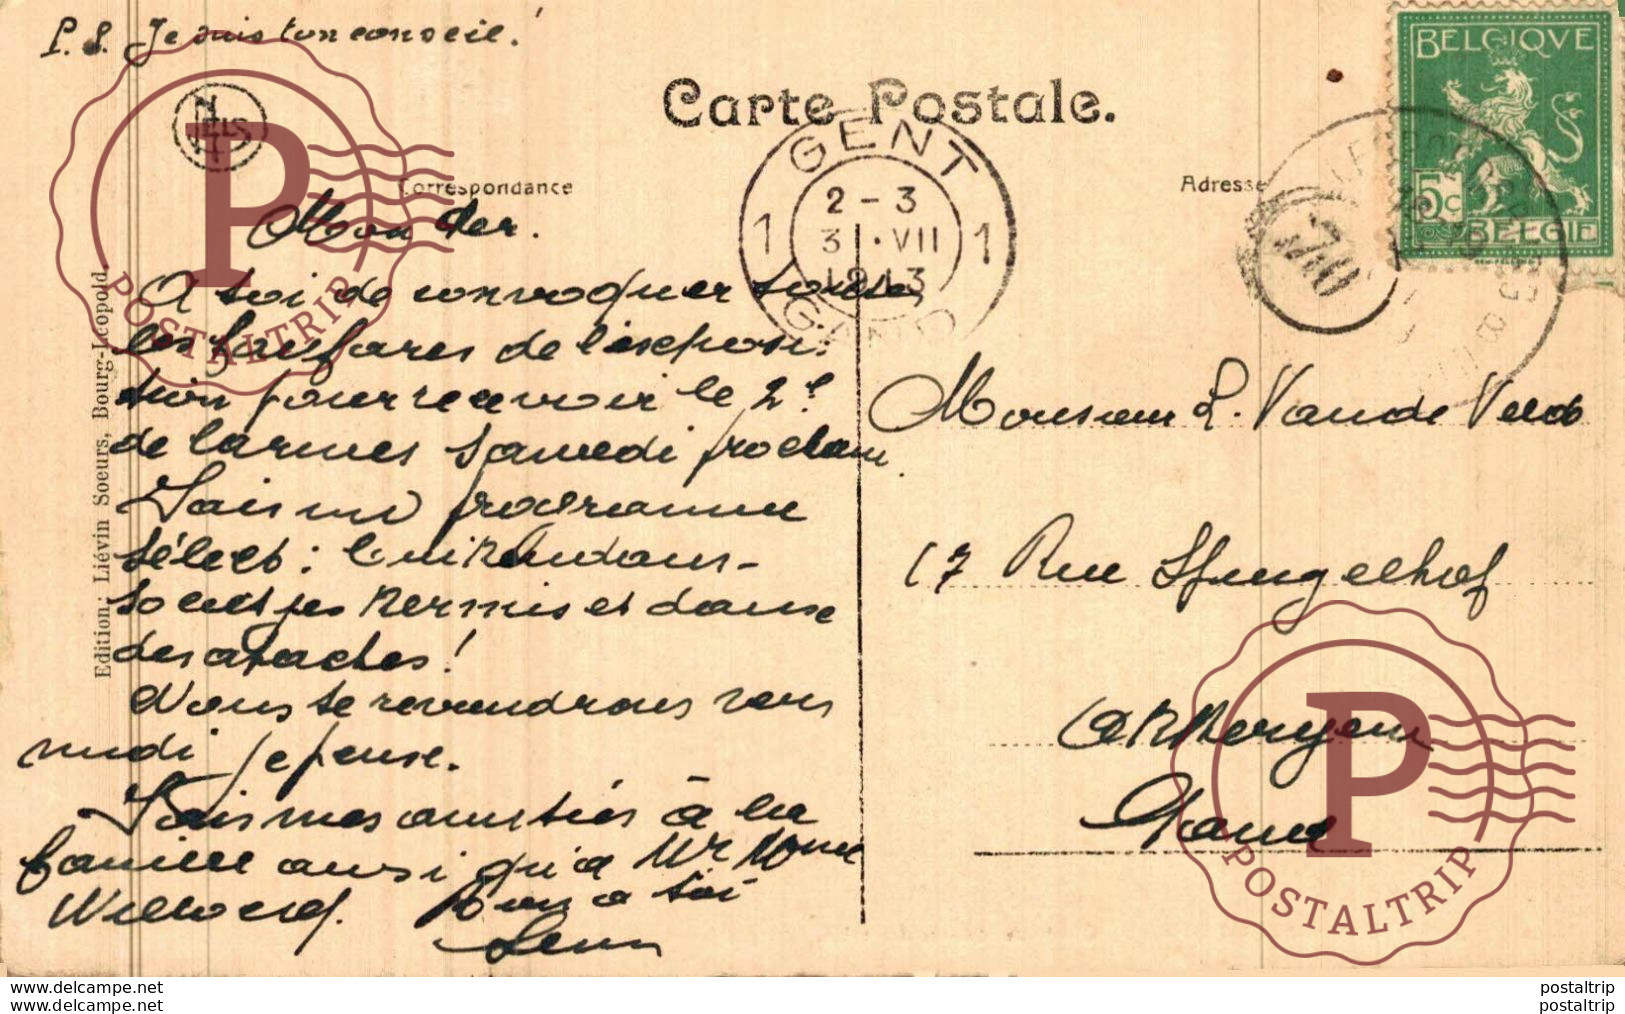 P.S. Je suis ton conseil!
NELS
Carte Postale.
Correspondance
Adresse
BELGIQVE
5c 5c
BELGIE
GENT
2 - 3
1 3 .VII 1
1913
GAND
Mon der.
A toi de convoquer toutes
les fanfares de l'exposi-
tion pour recevoir le 2e
de larmes Samedi prochain
Fais un programme
sélect :
Kermis et danse
des apaches!
Nous te reviendrons vers
midi je pense.
Fais mes amitiés à la
famille aussi qu'à Mr Mme
Willocq. Bien à toi
Leon
Monsieur L. Van de Velde
17 Rue
Gand
Edition: Liévin Soeurs, Bourg-Léopold.
P
POSTALTRIP
P
POSTALTRIP
www.delcampe.net
www.delcampe.net
postaltrip
postaltrip